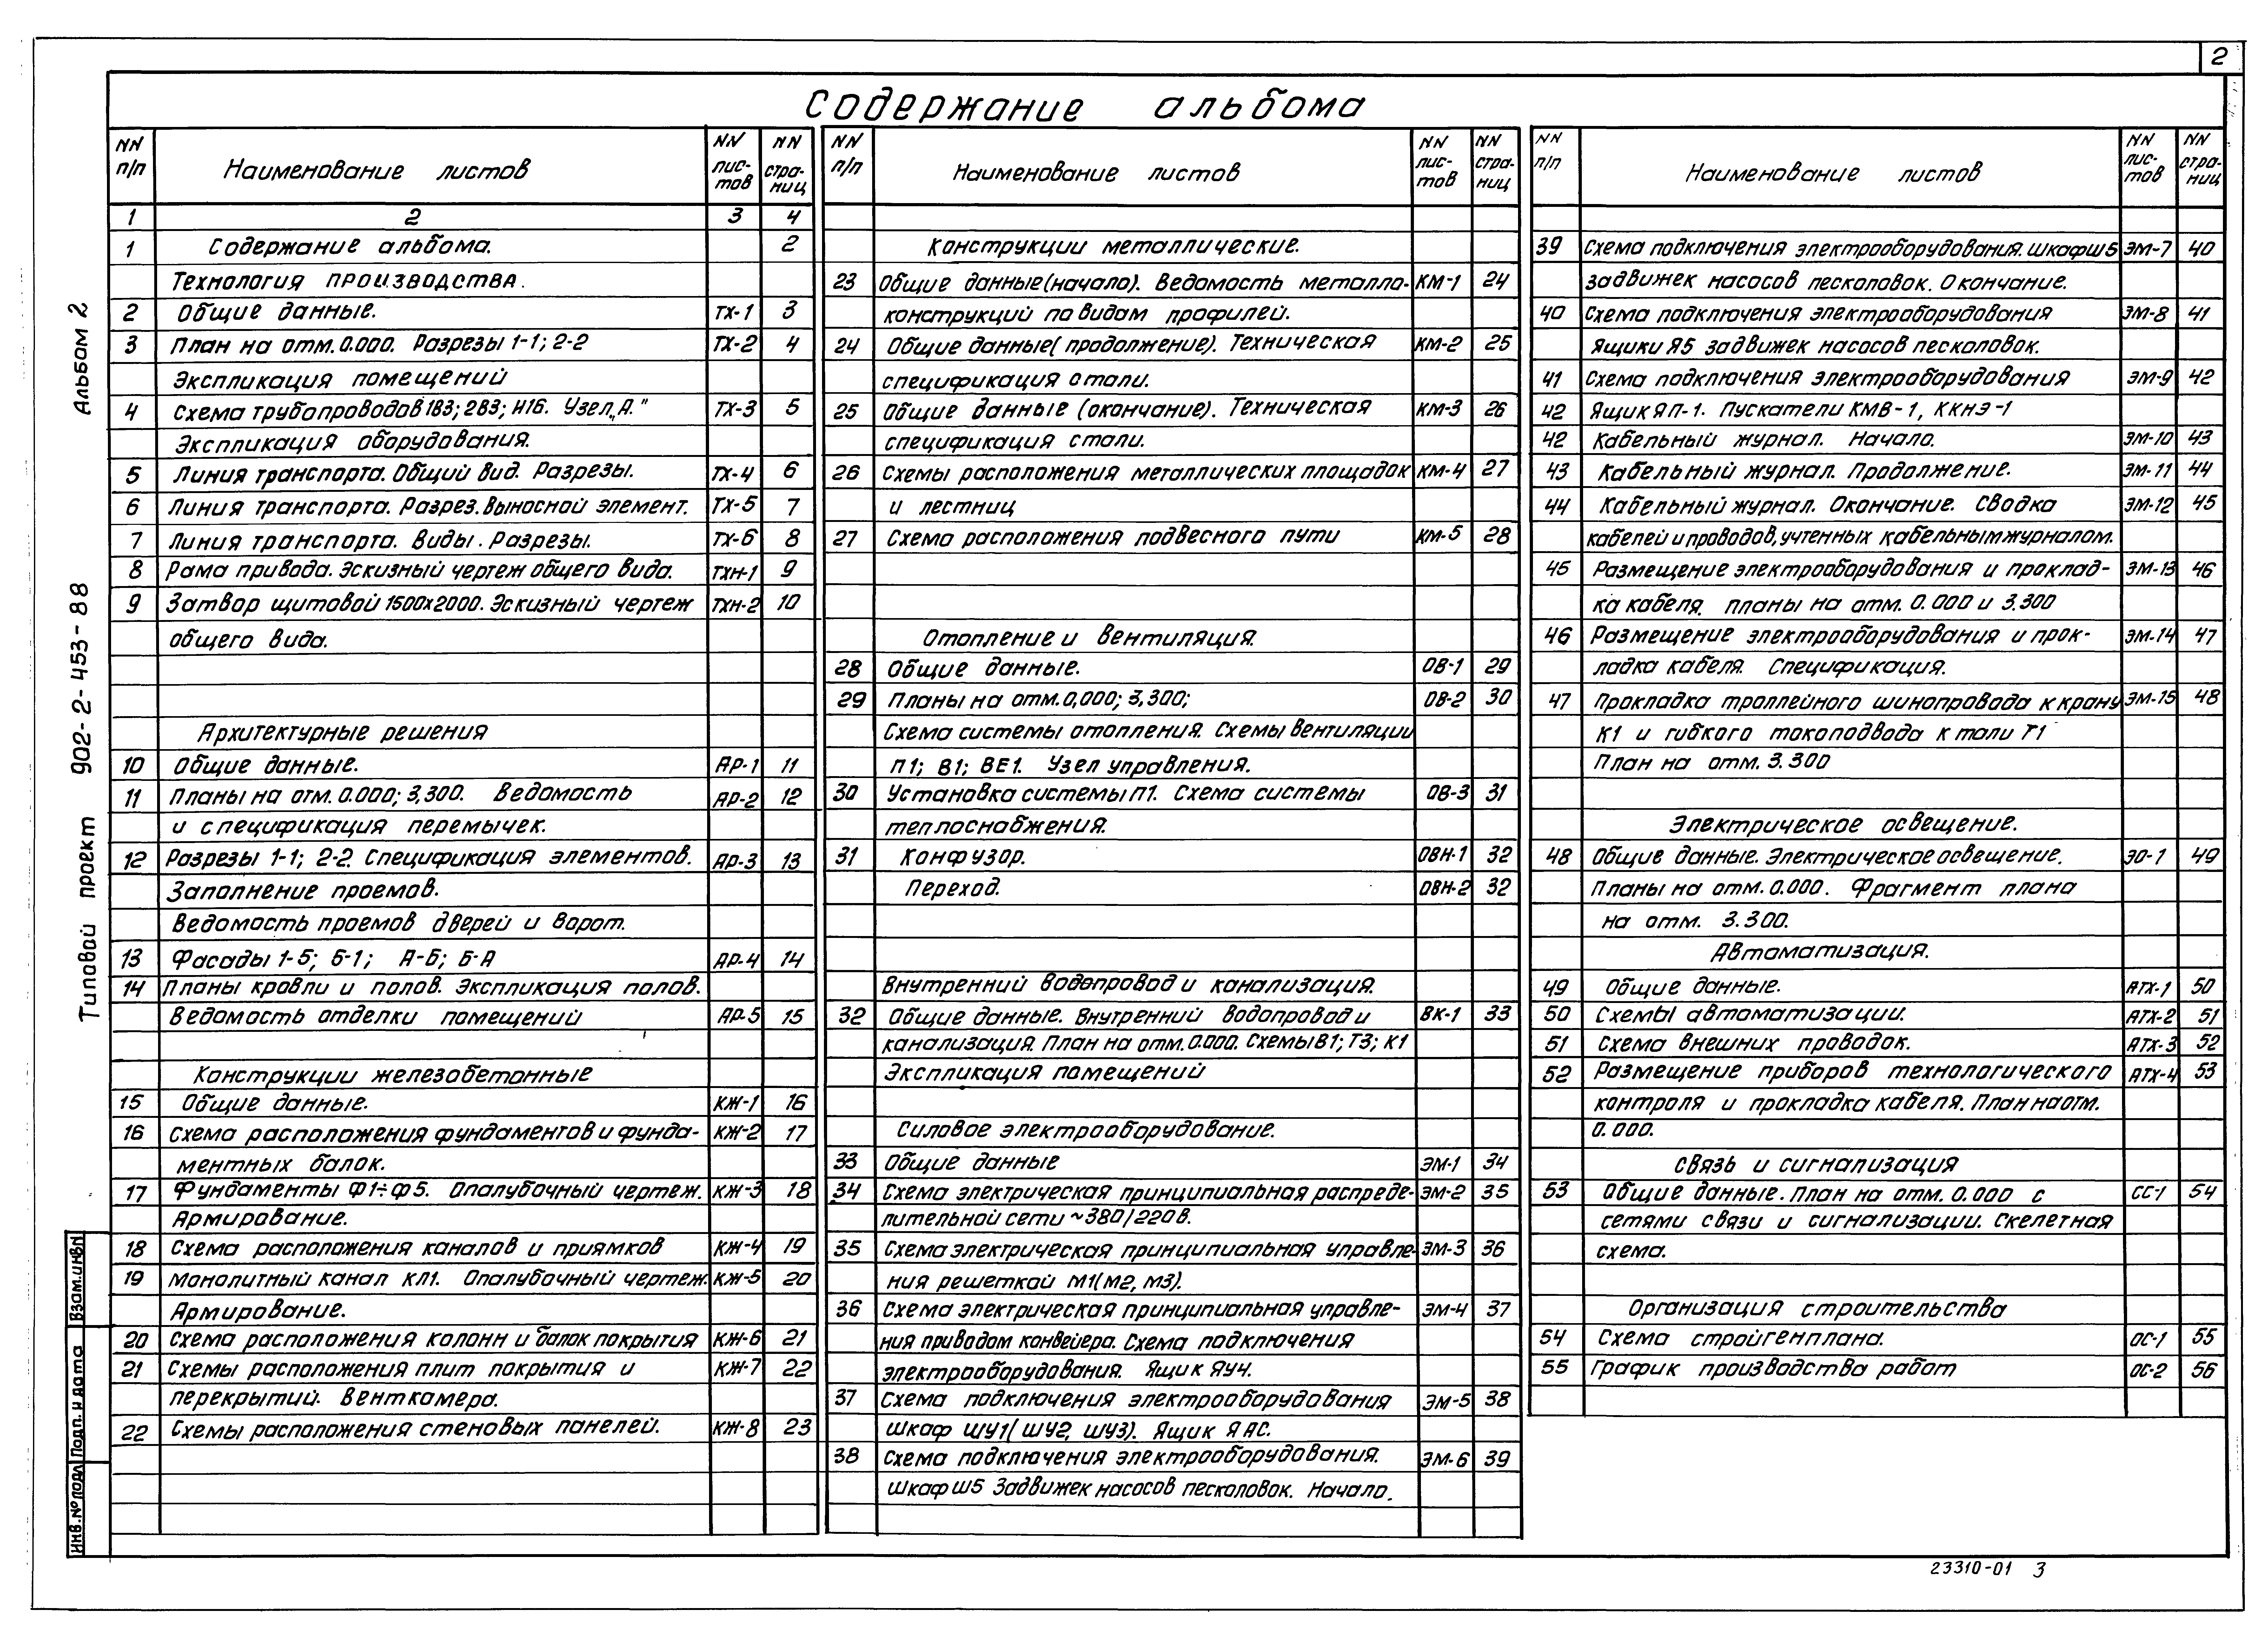 2
Содержание альбома
Альбом 2
Типовой проект 902-2-453-88
Взам.инв.N
Подп. и дата
Инв.№ подл
NN п/п Наименование листов NN лис-тов NN стра-ниц
1 2 3 4
1 Содержание альбома. 2
Технология производства.
2 Общие данные. ТХ-1 3
3 План на отм. 0.000. Разрезы 1-1; 2-2 ТХ-2 4
Экспликация помещений
4 Схема трубопроводов 1В3; 2В3; Н16. Узел „А." ТХ-3 5
Экспликация оборудования.
5 Линия транспорта. Общий вид. Разрезы. ТХ-4 6
6 Линия транспорта. Разрез. Выносной элемент. ТХ-5 7
7 Линия транспорта. Виды. Разрезы. ТХ-6 8
8 Рама привода. Эскизный чертеж общего вида. ТХН-1 9
9 Затвор щитовой 1500х2000. Эскизный чертеж ТХН-2 10
общего вида.
Архитектурные решения
10 Общие данные. АР-1 11
11 Планы на отм. 0.000; 3,300. Ведомость АР-2 12
и спецификация перемычек.
12 Разрезы 1-1; 2-2. Спецификация элементов. АР-3 13
Заполнение проемов.
Ведомость проемов дверей и ворот.
13 Фасады 1-5; 5-1; А-Б; Б-А АР-4 14
14 Планы кровли и полов. Экспликация полов.
Ведомость отделки помещений АР-5 15
Конструкции железобетонные
15 Общие данные. КЖ-1 16
16 Схема расположения фундаментов и фунда- КЖ-2 17
ментных балок.
17 Фундаменты Ф1÷Ф5. Опалубочный чертеж. КЖ-3 18
Армирование.
18 Схема расположения каналов и приямков КЖ-4 19
19 Монолитный канал КЛ1. Опалубочный чертеж. КЖ-5 20
Армирование.
20 Схема расположения колонн и балок покрытия КЖ-6 21
21 Схемы расположения плит покрытия и КЖ-7 22
перекрытий. Венткамера.
22 Схемы расположения стеновых панелей. КЖ-8 23
NN п/п Наименование листов NN лис-тов NN стра-ниц
Конструкции металлические.
23 Общие данные (начало). Ведомость металло- КМ-1 24
конструкций по видам профилей.
24 Общие данные (продолжение). Техническая КМ-2 25
спецификация стали.
25 Общие данные (окончание). Техническая КМ-3 26
спецификация стали.
26 Схемы расположения металлических площадок КМ-4 27
и лестниц
27 Схема расположения подвесного пути КМ-5 28
Отопление и вентиляция.
28 Общие данные. ОВ-1 29
29 Планы на отм. 0,000; 3,300; ОВ-2 30
Схема системы отопления. Схемы вентиляции
П1; В1; ВЕ1. Узел управления.
30 Установка системы П1. Схема системы ОВ-3 31
теплоснабжения.
31 Конфузор. ОВН-1 32
Переход. ОВН-2 32
Внутренний водопровод и канализация.
32 Общие данные. Внутренний водопровод и ВК-1 33
канализация. План на отм. 0.000. Схемы В1; Т3; К1
Экспликация помещений
Силовое электрооборудование.
33 Общие данные ЭМ-1 34
34 Схема электрическая принципиальная распреде- ЭМ-2 35
лительной сети ~380/220в.
35 Схема электрическая принципиальная управле- ЭМ-3 36
ния решеткой М1(М2, М3).
36 Схема электрическая принципиальная управле- ЭМ-4 37
ния приводом конвейера. Схема подключения
электрооборудования. Ящик ЯУ4.
37 Схема подключения электрооборудования ЭМ-5 38
шкаф ШУ1( ШУ2, ШУ3). Ящик Я АС.
38 Схема подключения электрооборудования. ЭМ-6 39
шкаф Ш5 Задвижек насосов песколовок. Начало.
NN п/п Наименование листов NN лис-тов NN стра-ниц
39 Схема подключения электрооборудования. Шкаф Ш5 ЭМ-7 40
задвижек насосов песколовок. Окончание.
40 Схема подключения электрооборудования ЭМ-8 41
Ящики Я5 задвижек насосов песколовок.
41 Схема подключения электрооборудования ЭМ-9 42
42 Ящик ЯП-1. Пускатели КМВ-1, ККНЭ-1
42 Кабельный журнал. Начало. ЭМ-10 43
43 Кабельный журнал. Продолжение. ЭМ-11 44
44 Кабельный журнал. Окончание. Сводка ЭМ-12 45
кабелей и проводов, учтенных кабельным журналом.
45 Размещение электрооборудования и проклад- ЭМ-13 46
ка кабеля. Планы на отм. 0.000 и 3.300
46 Размещение электрооборудования и прок- ЭМ-14 47
ладка кабеля. Спецификация.
47 Прокладка троллейного шинопровода к крану ЭМ-15 48
К1 и гибкого токоподвода к тали Т1
План на отм. 3.300
Электрическое освещение.
48 Общие данные. Электрическое освещение. ЭО-1 49
Планы на отм. 0.000. Фрагмент плана
на отм. 3.300.
Автоматизация.
49 Общие данные. АТХ-1 50
50 Схемы автоматизации. АТХ-2 51
51 Схема внешних проводок. АТХ-3 52
52 Размещение приборов технологического АТХ-4 53
контроля и прокладка кабеля. План на отм.
0.000.
Связь и сигнализация
53 Общие данные. План на отм. 0.000 с СС-1 54
сетями связи и сигнализации. Скелетная
схема.
Организация строительства
54 Схема стройгенплана. ОС-1 55
55 График производства работ ОС-2 56
23310-01 3